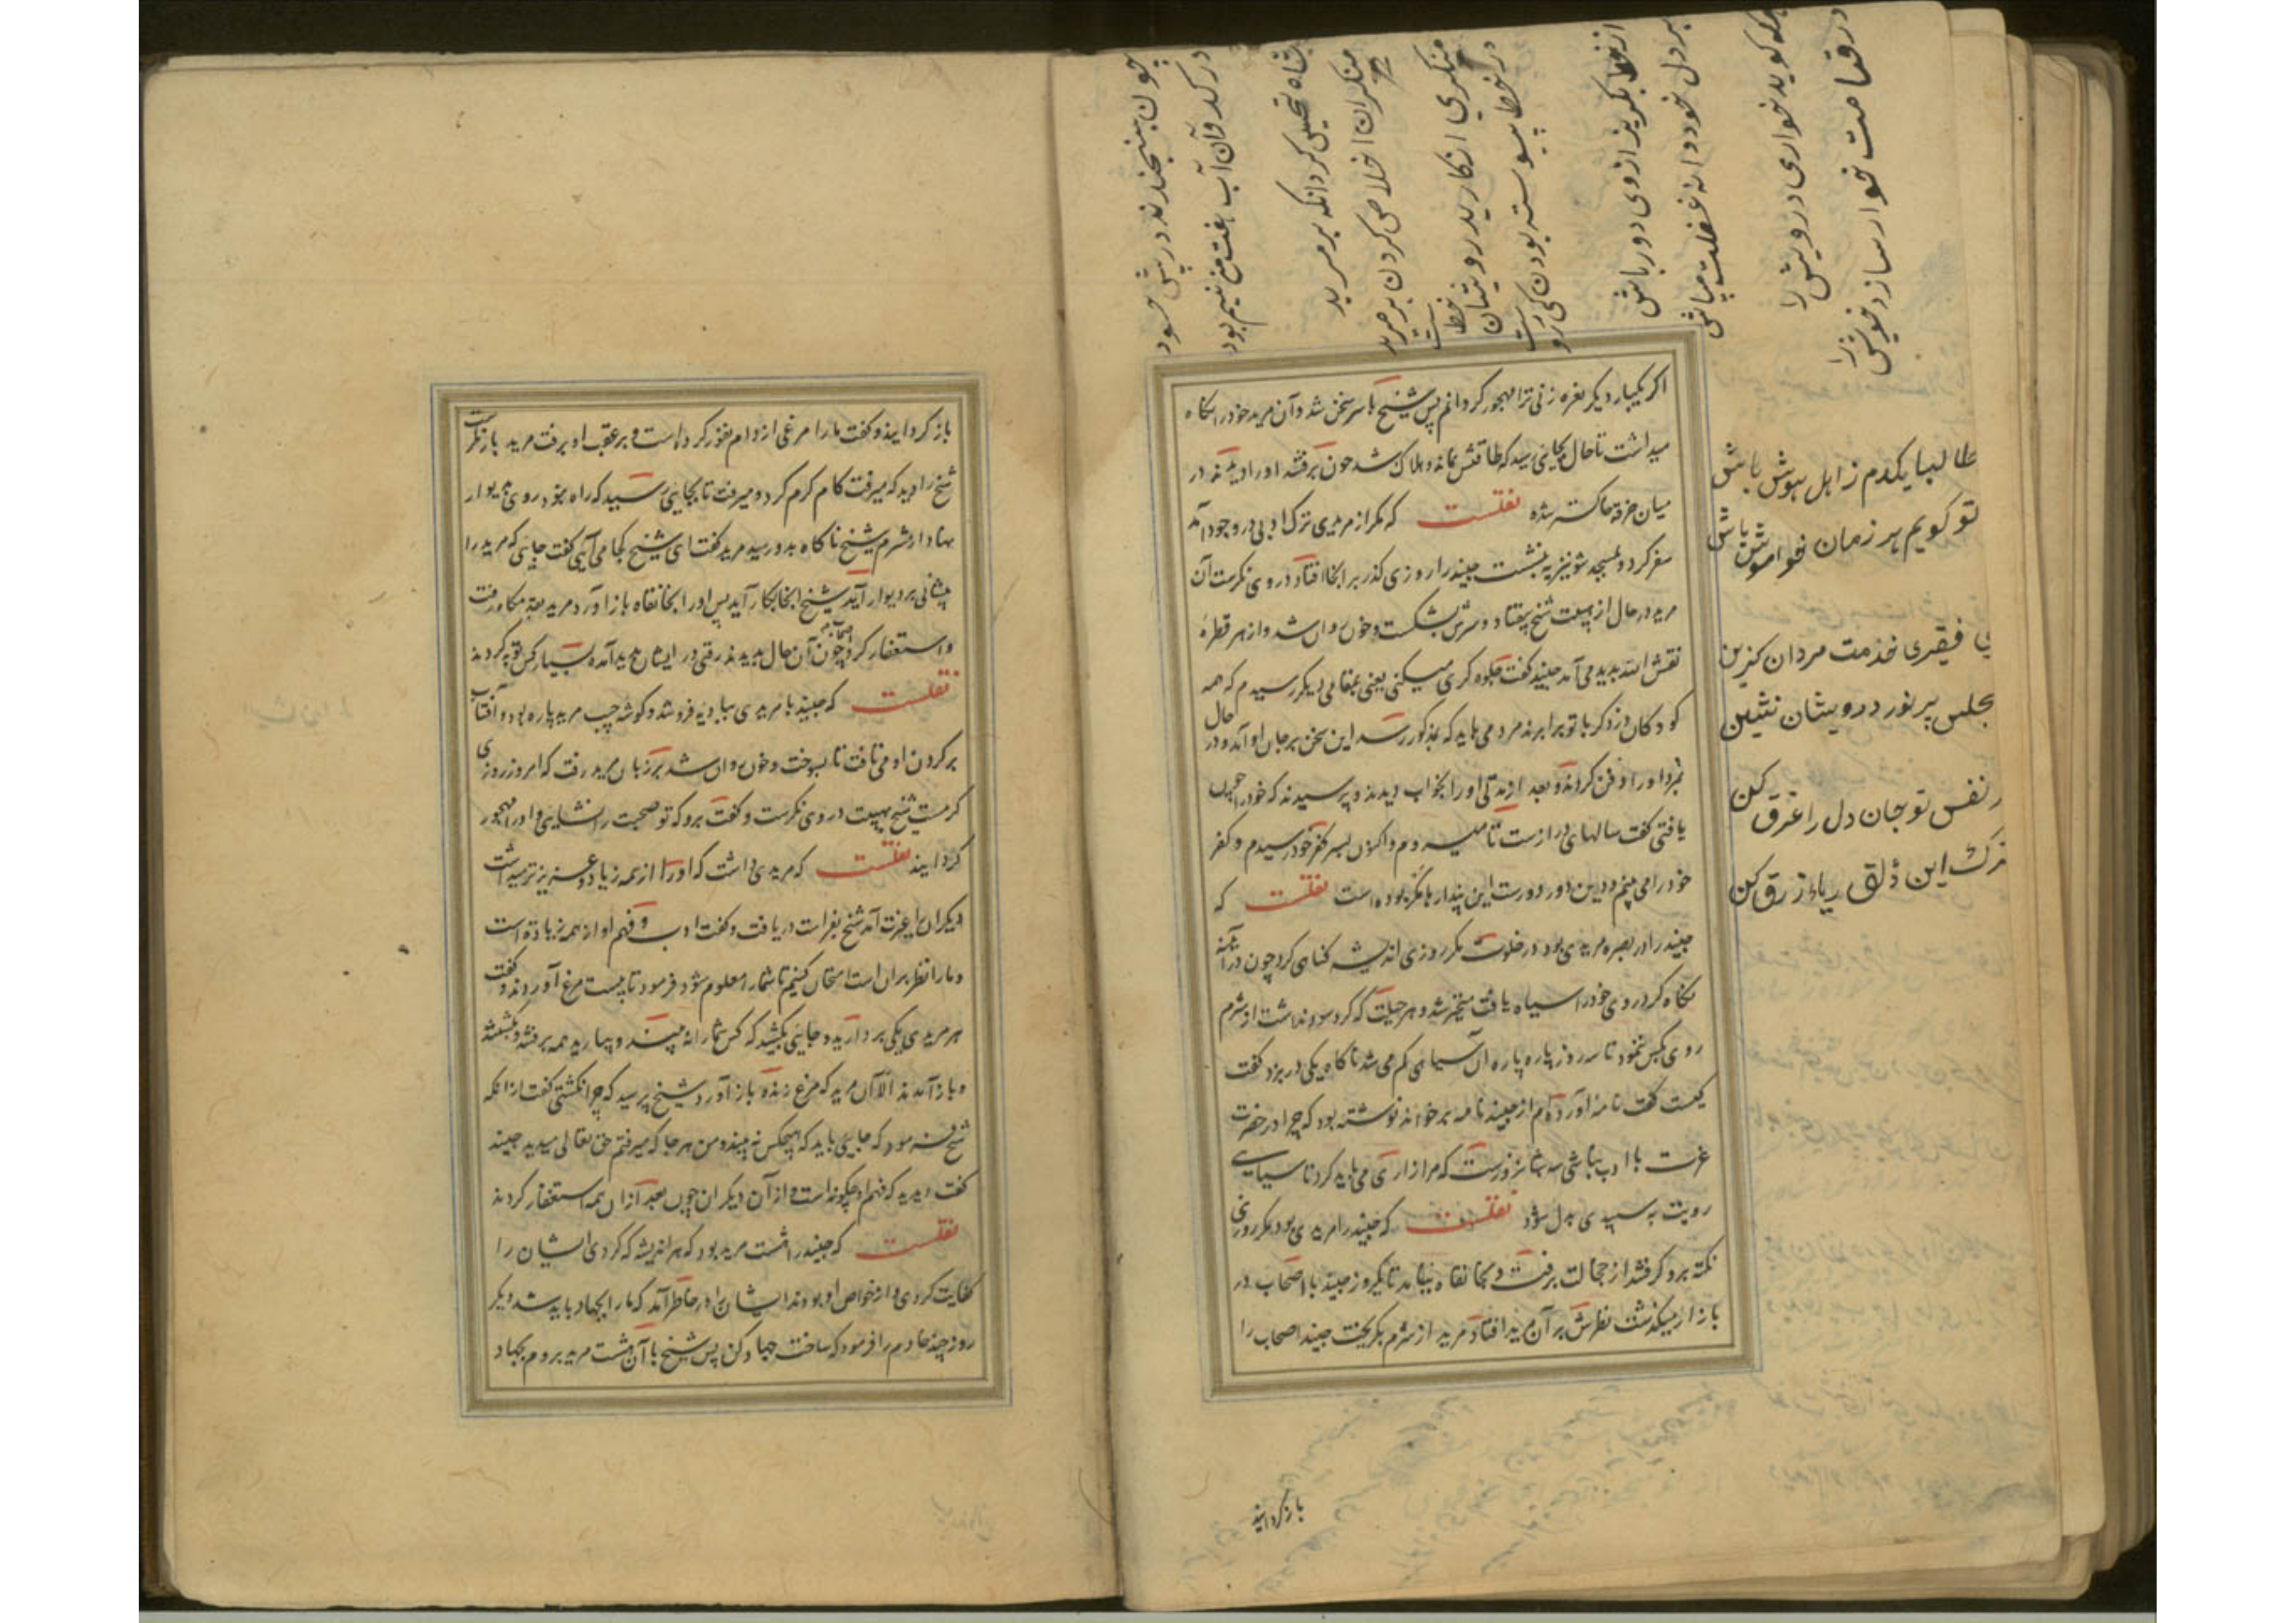 اگر یکبار دیگر نعره زنی ترا مهجور گردانم پس شیخ با سر سخن شد و آن مرید خود را نگاه
میداشت تا حال بجایی رسید که طاقتش نماند و هلاک شد چون برفتند او را دیدند در
میان خرقه خاکستر شده نقلست که مگر از مریدی ترک ادبی در وجود آمد
سفر کرد و بمسجد شونیزیه بنشست جنید را روزی گذر بر آنجا افتاد در وی نگریست آن
مرید در حال از هیبت شیخ بیفتاد و سرش بشکست و خون روان شد و از هر قطرهٔ
نقش الله پدید می آمد جنید گفت جلوه گری میکنی یعنی بمقام ذکر رسیدم که همه
کودکان در ذکر با تو برابرند مرد می باید که بمذکور رسد این سخن بر جان او آمد و در حال
بمرد او را دفن کردند و بعد از مدتی او را بخواب دیدند و پرسیدند که خود را چون
یافتی گفت سالهای درازست تا میروم و اکنون بسر کفر خود رسیدم و کفر
خود را می بینم و دین دور دورست این پندارها مکر بوده است نقلست که
جنید را در بصره مریدی بود در خلوت مگر روزی اندیشه گناهی کرد چون در آینه
نگاه کرد روی خود را سیاه یافت متحیر شد و هر حیلت که کرد سود نداشت از شرم
روی بکس ننمود تا سه روز پاره پاره آن سیاهی کم می شد ناگاه یکی در بزد گفت
کیست گفت نامه آورده ام از جنید نامه بر خواند نوشته بود که چرا در حضرت
عزت با ادب نباشی سه شبانروزست که مرا گازری می باید کرد تا سیاهی
رویت به سپیدی بدل شود نقلست که جنید را مریدی بود مگر روزی
نکته برو گرفتند از خجالت برفت و بخانقاه نیامد تا یکروز جنید با اصحاب در
بازار میگذشت نظرش بر آن مرید افتاد مرید از شرم بگریخت جنید اصحاب را
باز گردانید
طالبا یکدم ز اهل هوش باش
تو گویم هر زمان خواموش باش
فقیری خذمت مردان گزین
مجلس پر نور درویشان نشین
نفس تو جان دل را غرق کن
ترک این دلق ریاء زرق کن
در قیامت خوار سازد خویش را
که گوید خواری درویش را
بر دل خود دانه غفلت مپاش
بگریز از وی دور باش
در خطا پیوسته بودن کی رواست
منکری انکار بدرویشان خطاست
منکران اخلاص کردن بر مرید
در کدر آن آب
چون بسنجند در پیش خود
باز گردانید و گفت ما را مرغی از دام نفور کرده است و بر عقب او برفت مرید باز نگریست
شیخ را دید که میرفت گام گرم کرد و میرفت تا بجایی رسید که راه نبود روی بدیوار
نهاد از شرم شیخ ناگاه بدو رسید مرید گفت ای شیخ کجا می آیی گفت جایی که مرید را
پیشانی بر دیوار آید شیخ آنجا بکار آید پس او را بخانقاه باز آورد مرید بقدمگاه رفت
و استغفار کرد چون آن حال بدیدند رقتی در ایشان پدید آمد بسیار کس توبه کردند
نقلست که جنید با مریدی ببادیه فرو شد و گوشه جیب مرید پاره بود و آفتاب
بر گردن او می تافت تا بسوخت و خون روان شد بر زبان مرید رفت که امروز روزی
گرمست شیخ بهیبت در وی نگریست و گفت برو که تو صحبت را نشایی و او را مهجور
گردانید نقلست که مریدی داشت که او را از همه زیاده و عزیزتر میداشت
دیگران را غیرت آمد شیخ بفراست دریافت و گفت ادب و فهم او از همه زیادت است
و ما را نظر بر آن است امتحان کنیم تا شما را معلوم شود فرمود تا بیست مرغ آوردند و گفت
هر مریدی یکی بردارید و جایی بکشید که کس شما را نه بیند و بیارید همه برفتند و بکشتند
و باز آمدند الا آن مرید که مرغ زنده باز آورد شیخ پرسید که چرا نکشتی گفت از آنکه
شیخ فرمود که جایی باید که هیچکس نه بیند و من هر جا که میرفتم حق تعالی میدید جنید
گفت دیدید که فهم او چگونه است و از آن دیگران چون بعد از آن همه استغفار کردند
نقلست که جنید را هشت مرید بود که هر اندیشه که کردی ایشان را
کفایت کردی و از خواص او بودند ایشان را در خاطر آمد که ما را بجهاد باید شد دیگر
روز جنید خادم را فرمود که ساخت جهاد کن پس شیخ با آن هشت مرید بروم بجهاد